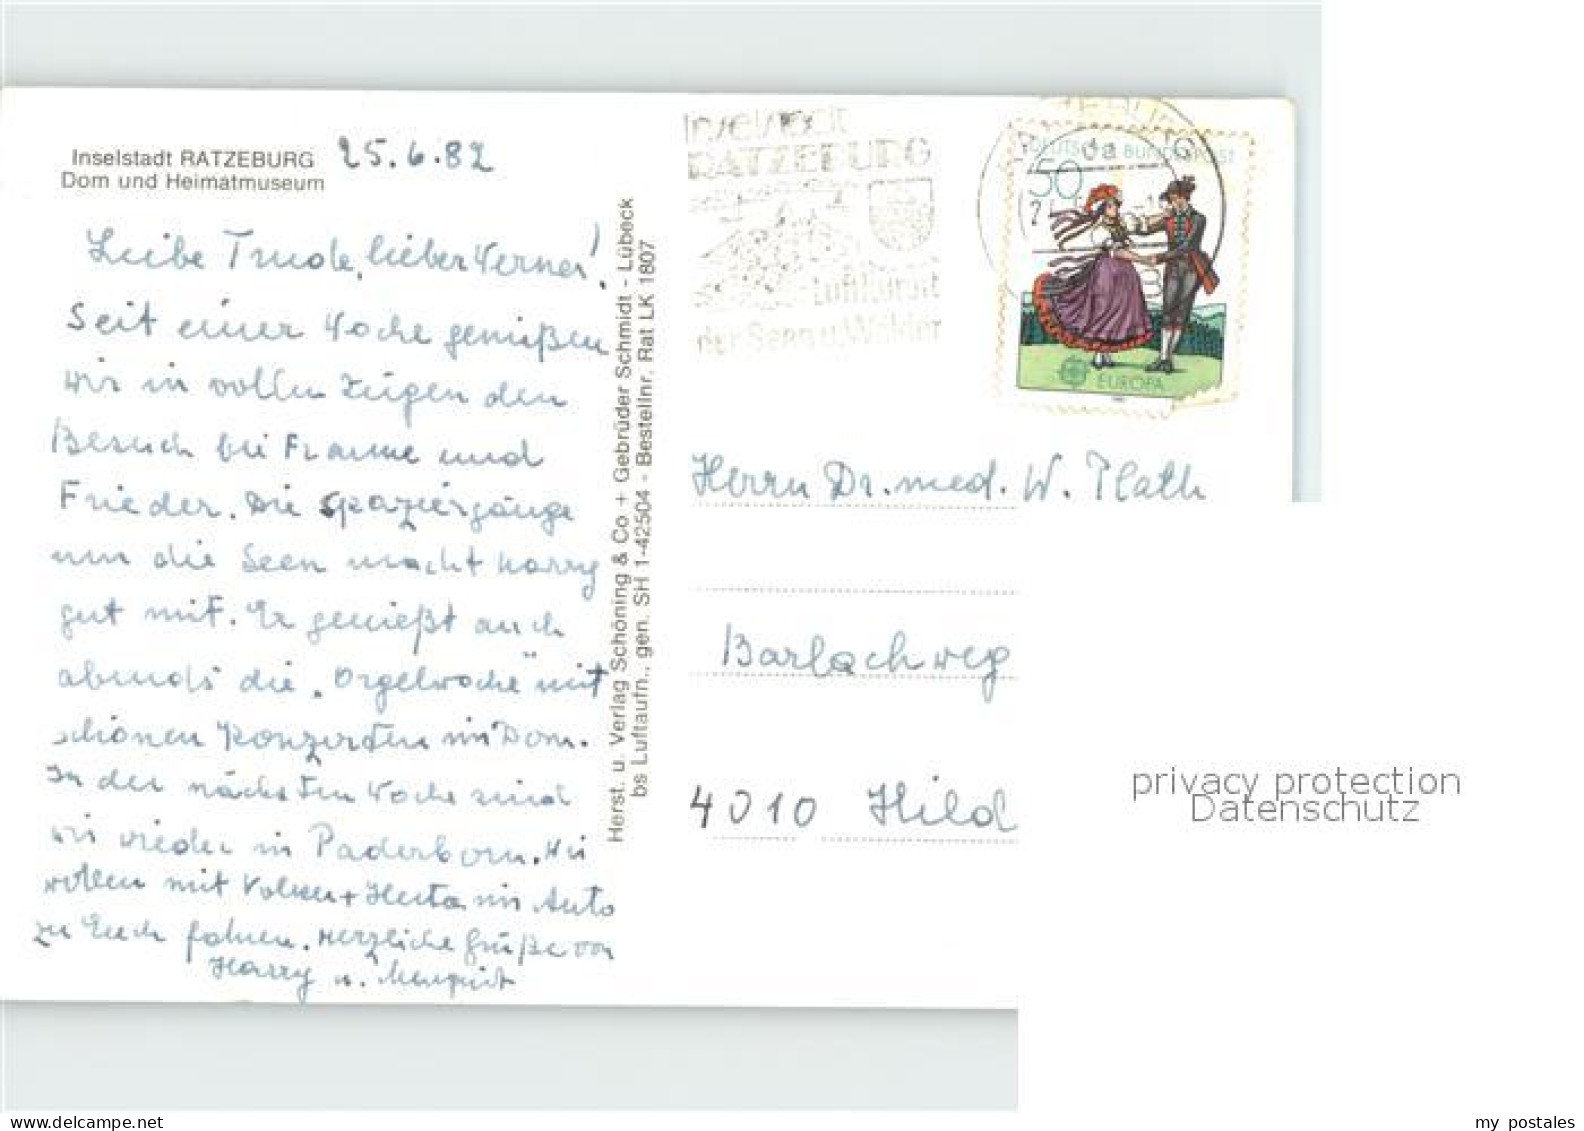 Inselstadt RATZEBURG 25.6.82
Dom und Heimatmuseum
Liebe Trude, lieber Werner!
Seit einer Woche genießen
wir in vollen Zügen den
Besuch bei und
Frieder. Die Spaziergänge
um die Seen macht Harry
gut mit. Er genießt auch
abends die „Orgelwoche" mit
schönen Konzerten im Dom.
In der nächsten Woche sind
wir wieder in Paderborn. Wir
wollen mit + Herta im Auto
zu Euch fahren. Herzliche Grüße von
Harry u.
Herst. u. Verlag Schöning & Co + Gebrüder Schmidt - Lübeck
bs Luftaufn., gen. SH 1-42504 - Bestellnr. Rat LK 1807
Inselstadt
RATZEBURG
Luftkurort
der Seen u. Wälder
DEUTSCHE BUNDESPOST
50
EUROPA
Herrn Dr. med. W. Plath
Barlachweg
4010 Hild
privacy protection
Datenschutz
my postales